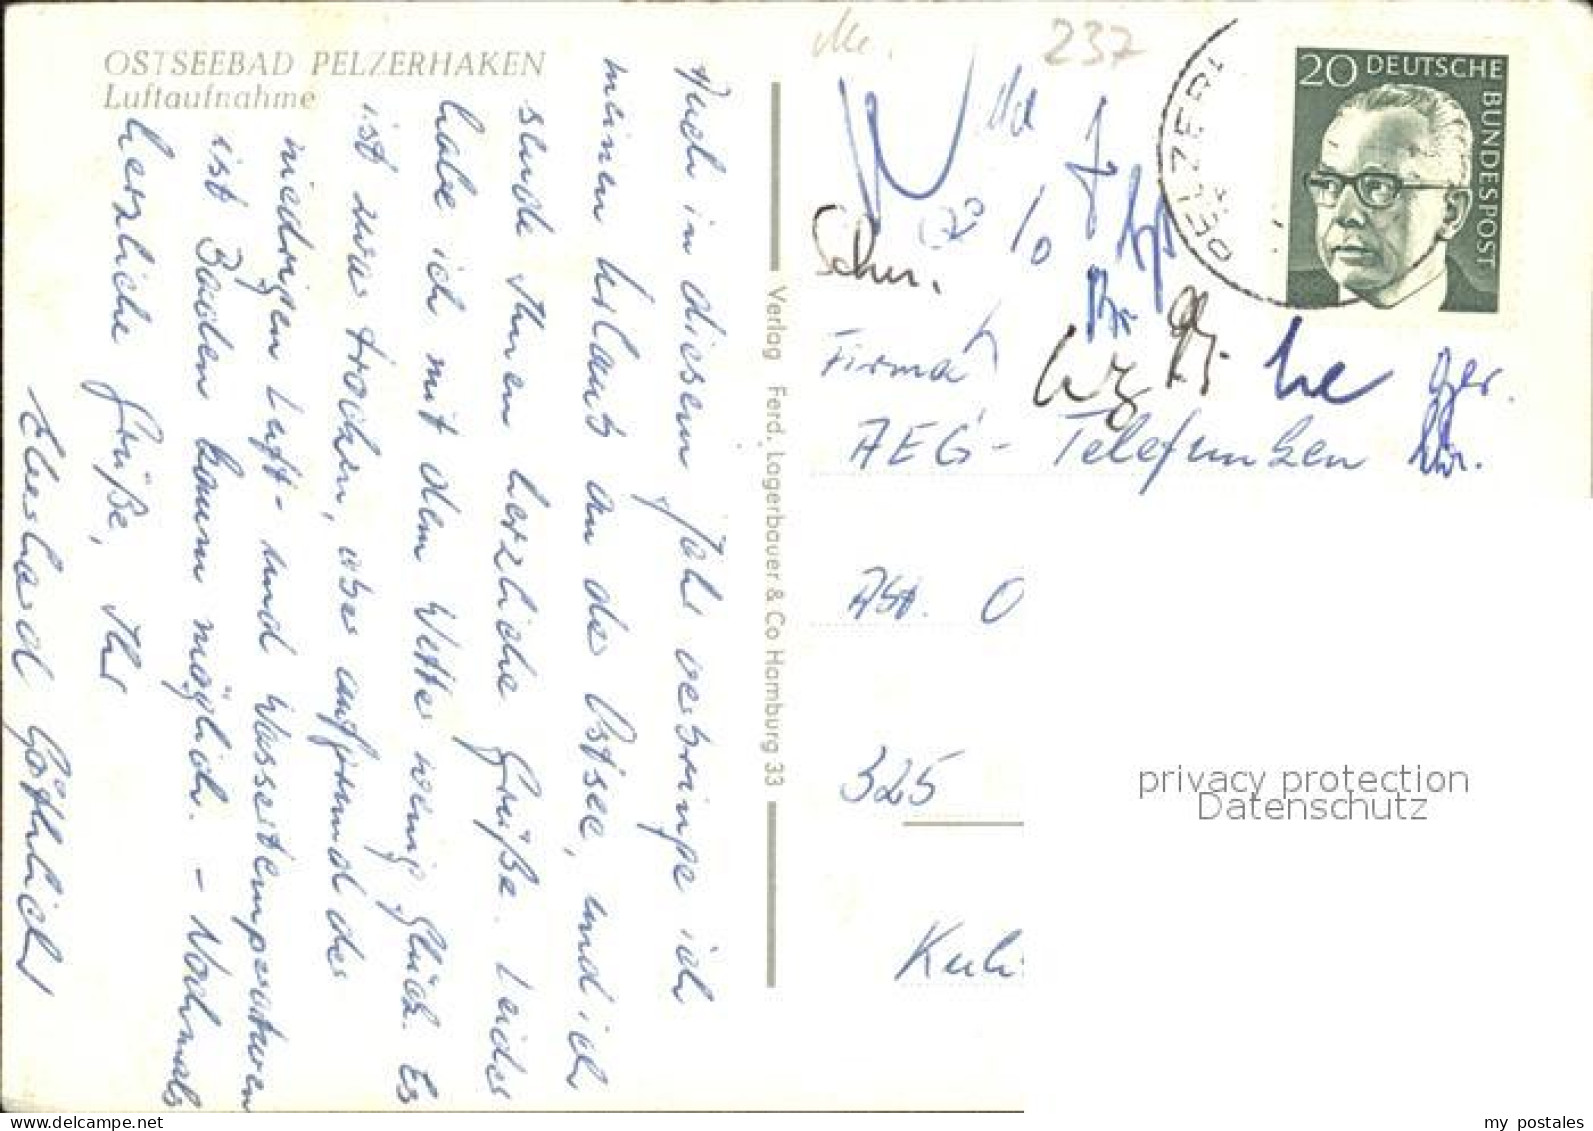 OSTSEEBAD PELZERHAKEN
Luftaufnahme
Auch in diesem Jahr verbringe ich
meinen Urlaub an der Ostsee, und ich
sende Ihnen herzliche Grüße. Leider
habe ich mit dem Wetter wenig Glück. Es
ist zwar trocken, aber aufgrund der
niedrigen Luft- und Wassertemperaturen
ist Baden kaum möglich. - Nochmals
herzliche Grüße, Ihr
Eberhard
Verlag Ferd. Lagerbauer & Co Hamburg 33
237
PELZERHA
20 DEUTSCHE
BUNDESPOST
Schw.
Firma
AEG - Telefunken
Abt. O
325
privacy protection
Datenschutz
my postales